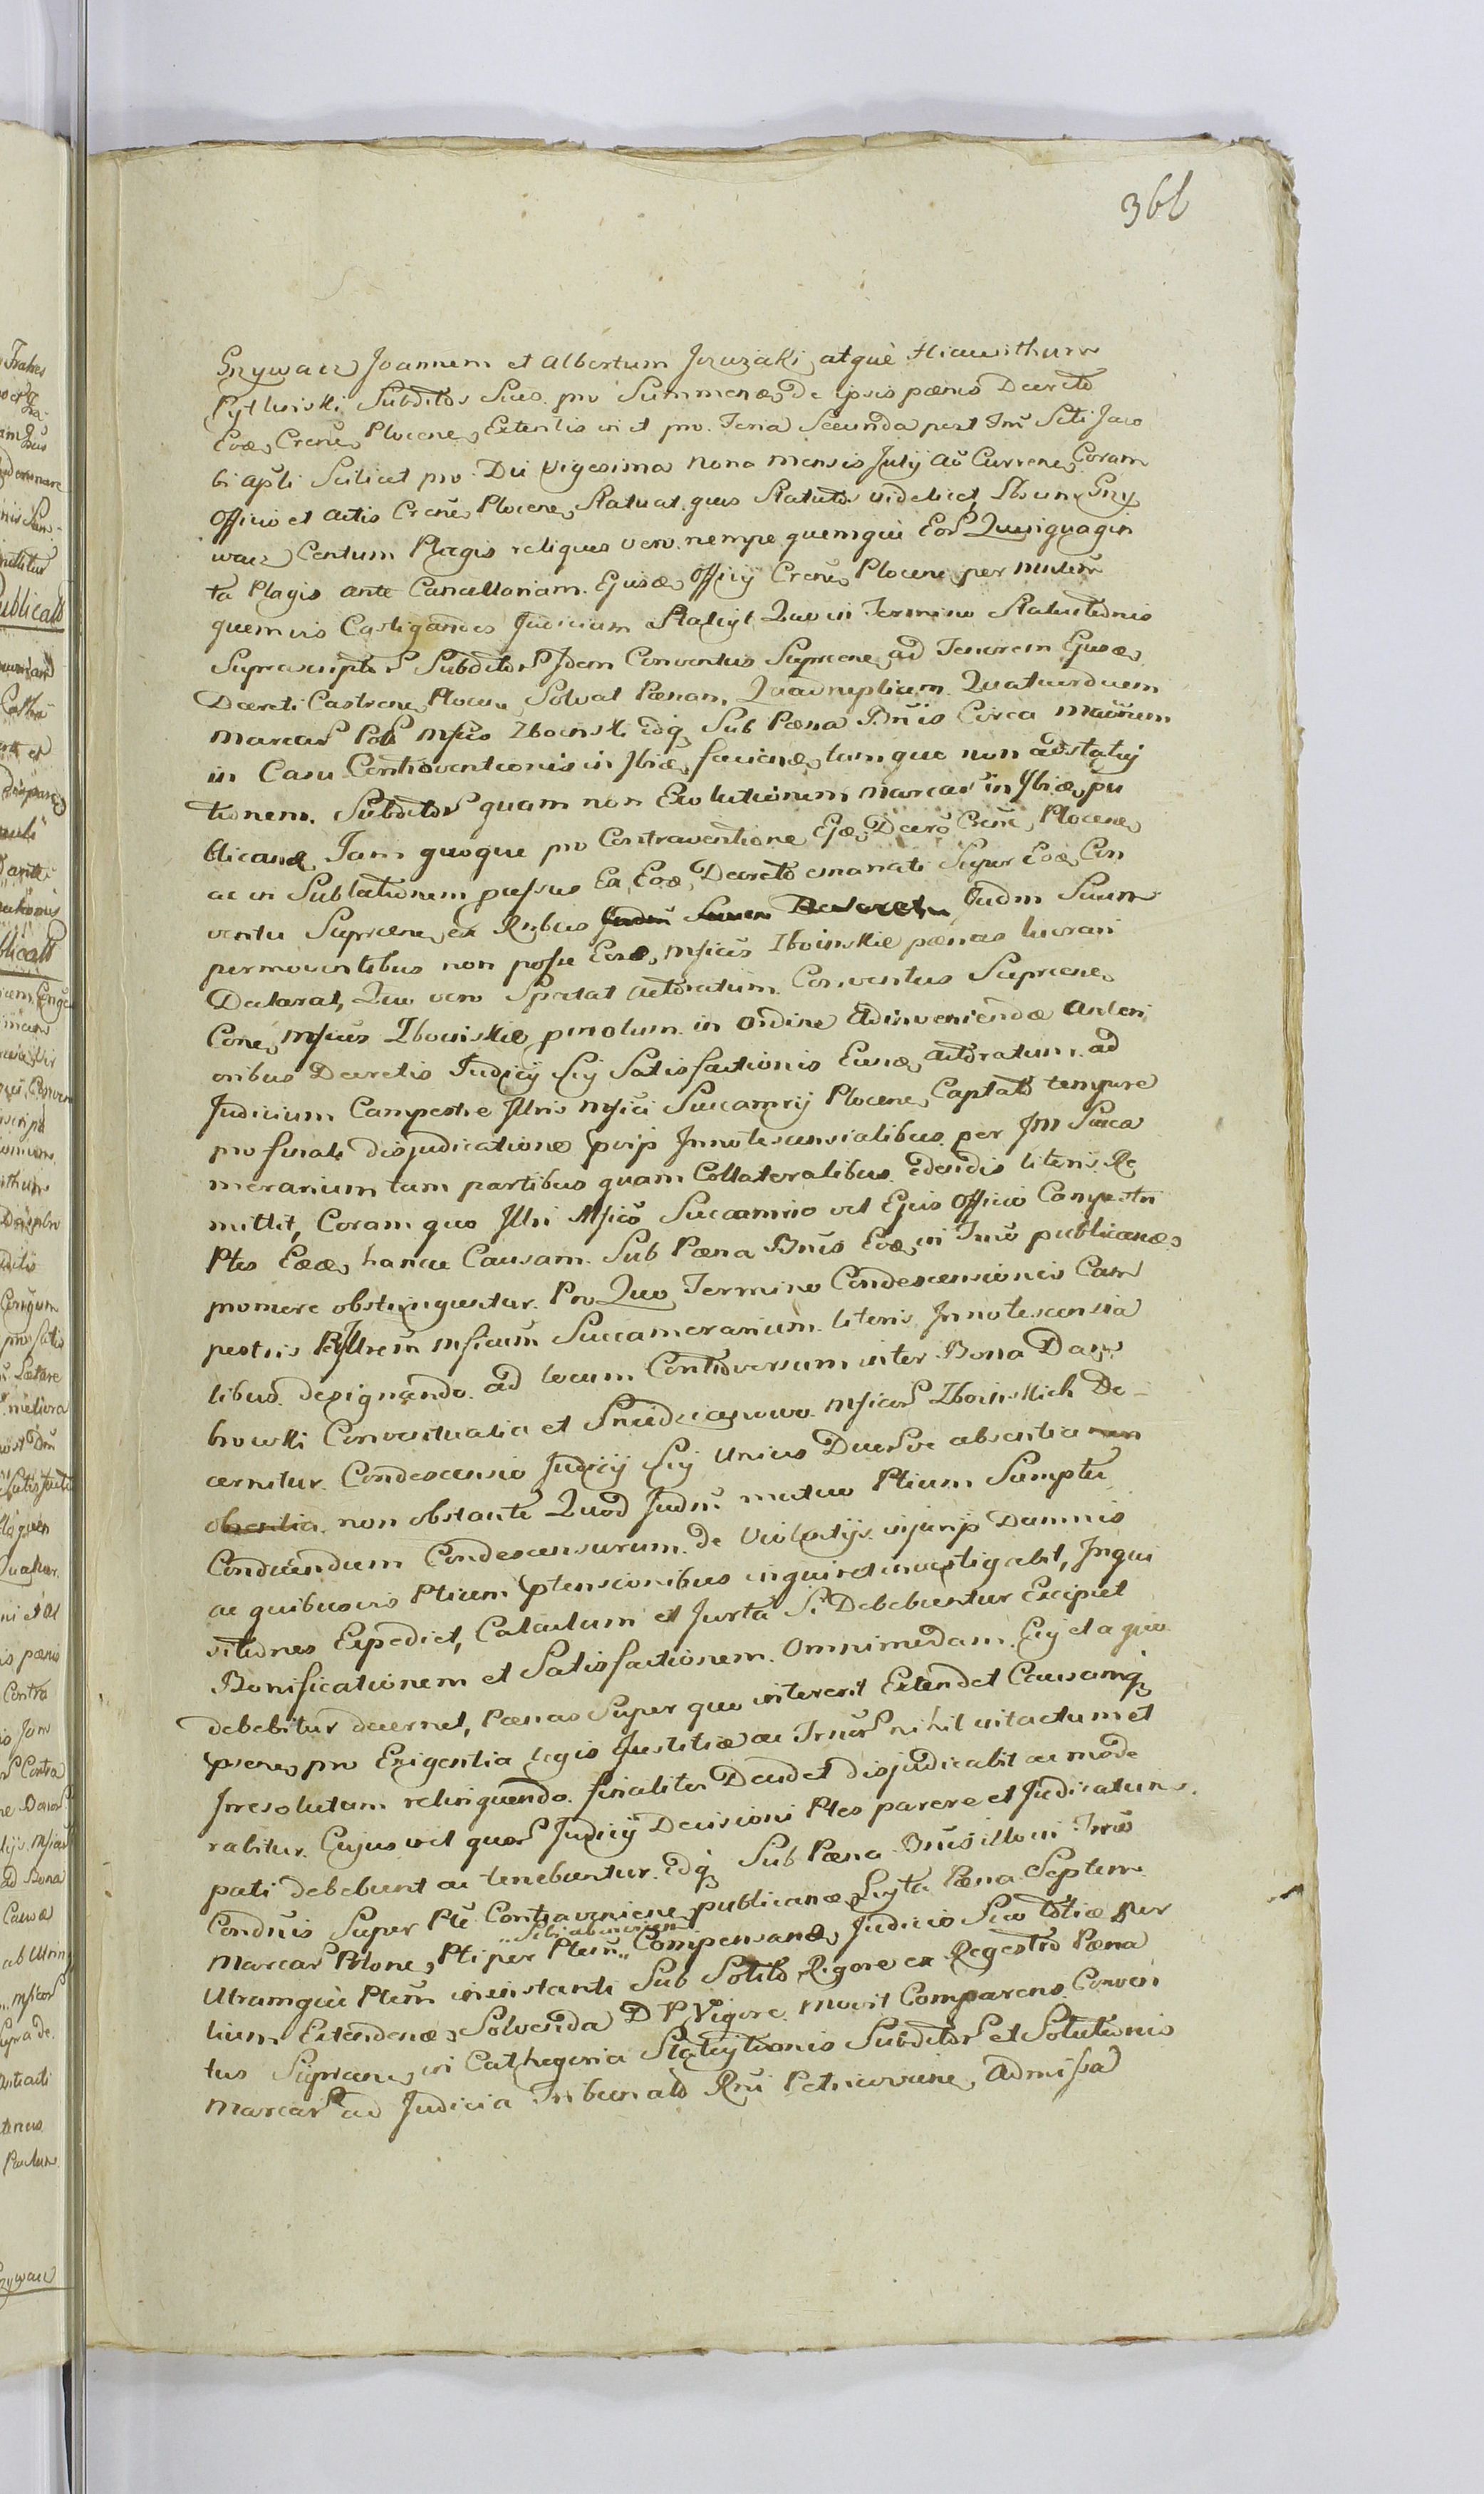 366
Grzywacz Joannem et Albertum Jozwiaki, atquè Hiacinthum
Subditos Suos pro Summendis de ipsis pœnis Decreto
Eod. Crens. Plocens. Extentis in et pro Feria Secunda post Fm Scti Jaco
bi Apli Scilicet pro Die Vigesima Nona Mensis Julij Aõ Currene, Coram
Officio et Actis Crens. Plocens, Statuat, quos Statutos videlicet, Grzy
wacz Centum Plagis reliquos vero nempe quemque Eor Quinquagin
ta Plagis ante Cancellariam Ejusd. Officij Crens. Plocens. per
quemvis Castigandos Judicium Statuit Quo in Termino Statutionis
Suprascriptor Subditor Idem Conventus Supriens. ad Tenorem Ejusd.
Decreti Castrens. Plocens. Solvat Pœnam Quadruplicem Quatuordecim
Marcar Pol Mficis Zboinski idq, Sub Pœna Bnis Circa
in Casu Contraventionis in Ibid. faciend, tam que non adstatui
tionem Subditor quam non Exolutionem Marcar in Ibid. pu
blicand. Tam quoque pro Contraventione Ejd. Decro Crens. Plocens.
ac in Sublationem passus Ex Eod. Decreto emanati Super Eod. Con
ventu Supriens. ex Rnbus Judm Suum
permoventibus non posse Eosd. Mficos Zboinskie pœnas luerari
Declarat, Quo vero Spectat Actoratum Conventus Supriens.
Cone, Mficos Zboinskie pmolum in Ordine Adinveniendæ Anteri
oribus Decretis Judicij Sui Satisfactionis Eund. Actoratum ad
Judicium Campestre Illris Mfici Succamrij Plocens, Captato tempore
pro finali disjudicatione Innotescensialibus per Im Succa
merarium tam partibus quam Collateralibus edendis literis Re
mittit, Coram quo Illri Mfico Succamrio vel Ejus Officio Campestri
Ptes Eæd, hancce Causam Sub Pœna Bnis Eod. in Tmo publicand.
promovere obstringuntur. Pro Quo Termino Condescensionis Cam
pestris P Illrem Mficum Succamerarium literis Innotescensia
libus designando ad locum Controversum inter Bona Dam
browski Conventualia et Mficor Zboinskich De-
cernitur Condescensio Judicij Sui Unius Duorve absentia
non obstante Quod Judm mutuo Ptium Sumptu
Conducendum Condescensurum de Violentijs injurijs Damnis
ac quibusvis Ptium ptensionibus inquiret investigabit, Inqui
sitiones Expediet, Calculum et Jurta Si Debebuntur Excipiet
Bonificationem et Satisfactionem Omnimodam Cuj et a quo
debebitur decernet, Pœnas Super quo intererit Extendet Causamq
psens, pro Exigentia legis Justitiæ ac Jrnor nihil intactum et
Irresolutum relinquendo finaliter Decidet disjudicabit ac mode
rabitur. Cujus vel quor Judicij Decisioni Ptes parere et Judicatum
pati debebunt ac tenebuntur. Idq Sub Pœna Bnis illo in Tmo
Conduis Super Pte Contraveniene, publicand, Pœna Septem
Marcar Polone, Pti per Ptem „Sibi ab invicem„ Compensand, Judicio Suo per
Utramquè Ptem in instanti Sub Solito Rigore ex Regestro Pœna
lium Extendend, Solvenda D P Vigore. Movit Comparens Conven
tus Supriens, in Cathegoria Statuitionis Subditor et Solutionis
Marcar ad Judicia Tribunalis Rni Petricoviens, Admissa